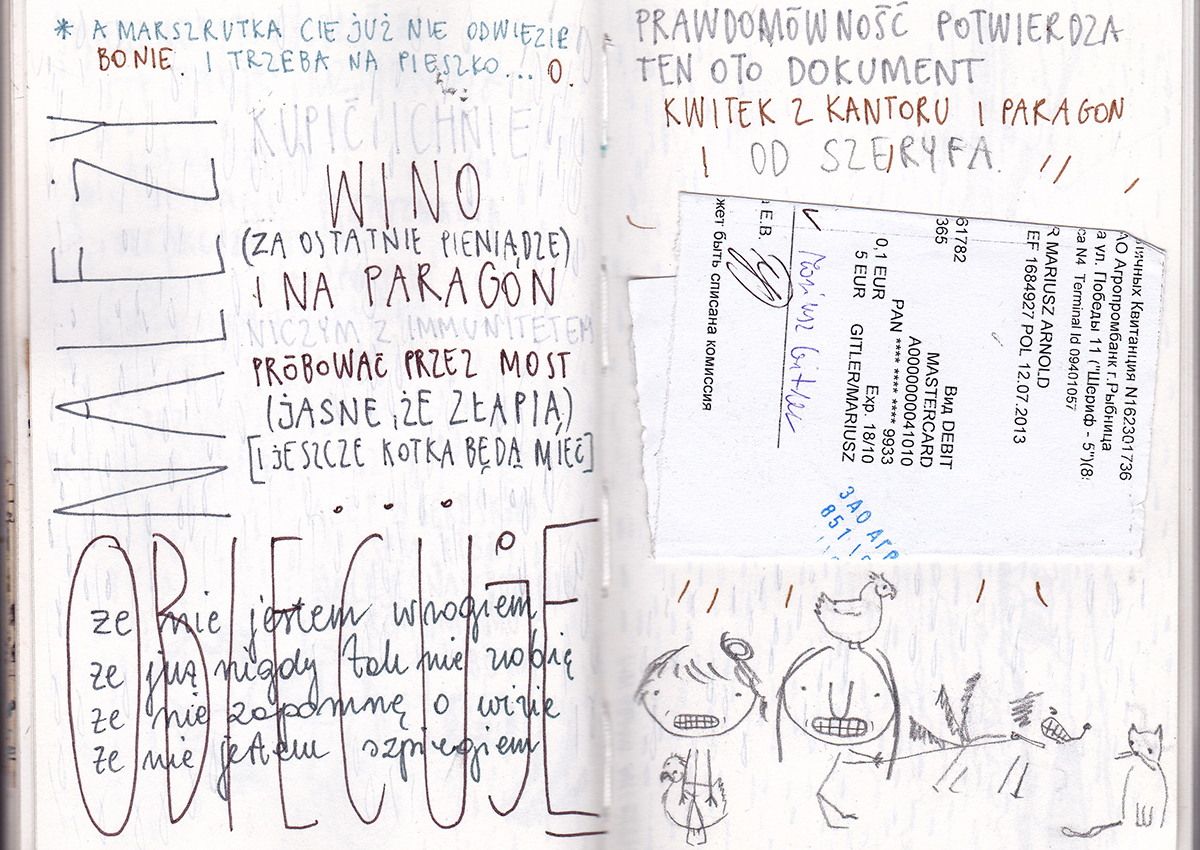 * A MARSZRUTKA CIE JUŻ NIE ODWIEZIE
BO NIE. I TRZEBA NA PIESZKO... O.
NALEŻY
KUPIĆ ICHNIE
WINO
(ZA OSTATNIE PIENIĄDZE)
I NA PARAGON
NICZYM Z IMMUNITETEM
PRÓBOWAĆ PRZEZ MOST
(JASNE, ŻE ZŁAPIĄ)
[I JESZCZE KOTKA BĘDĄ MIEĆ]
OBIECUJE
że nie jestem wrogiem
że już nigdy tak nie zrobię
że nie zapomnę o wizie
że nie jestem szpiegiem
PRAWDOMÓWNOŚĆ POTWIERDZA
TEN OTO DOKUMENT
KWITEK Z KANTORU I PARAGON
OD SZERYFA.
ичных Квитанция N162301736
АО Агропромбанк г.Рыбница
а ул. Победы 11 ("Шериф - 5")(8
са M4 Terminal Id 09401057
R MARIUSZ ARNOLD
EF 1684927 POL 12.07.2013
61782
365
Вид DEBIT
MASTERCARD
A0000000041010
PAN **** **** **** 9933
Exp. 18/10
0,1 EUR
5 EUR GITLER/MARIUSZ
Mariusz Gitler
а Е.В.
жет быть списана комиссия
ЗАО АГР
851